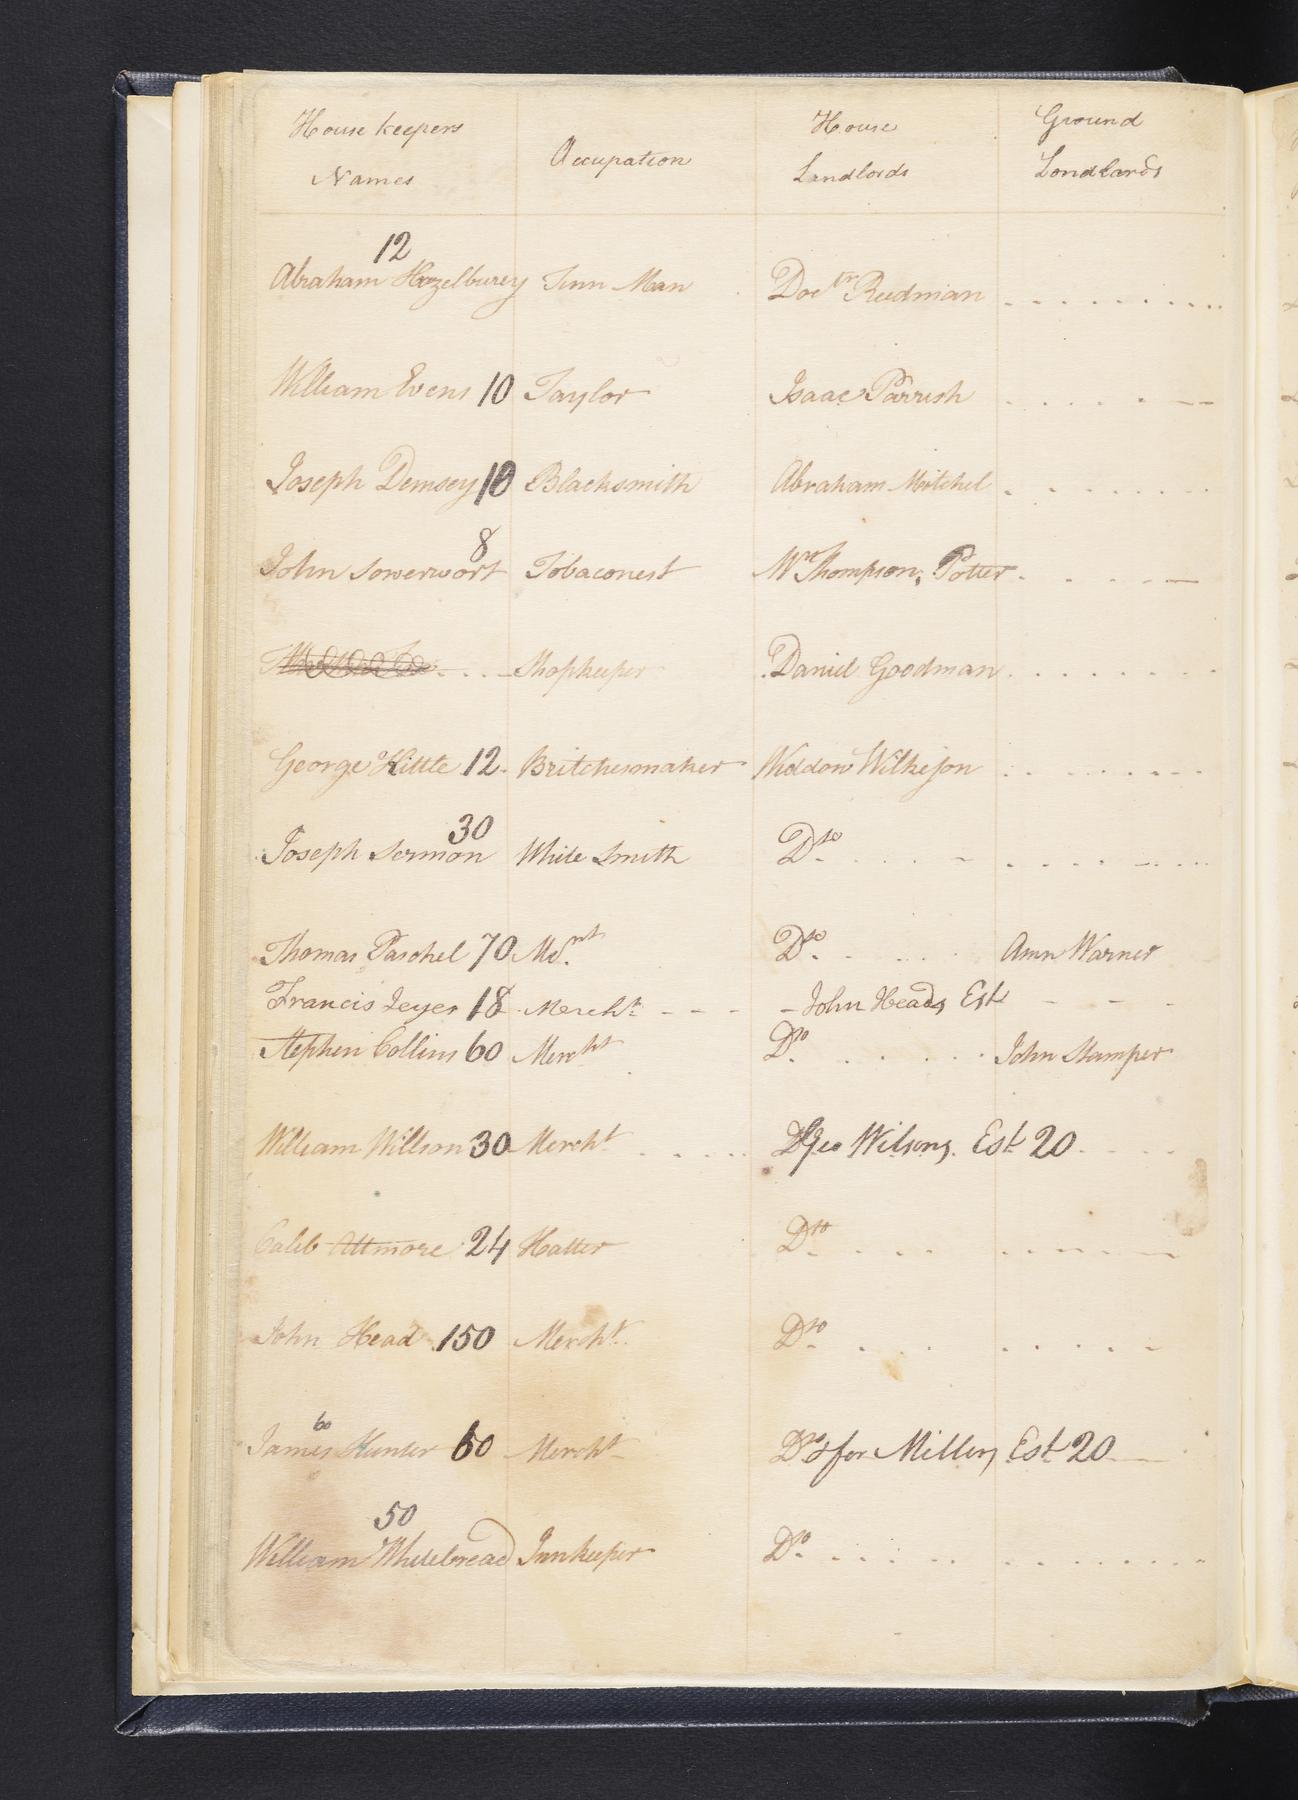 House keepers Names Occupation House Landlords Ground Londlards
12
Abraham Hazelburey Tinn Man Doctr Redman
William Evens 10 Taylor Isaac Parrish
Joseph Demsey 10 Blacksmith Abraham Mitchel
8
John Sowerwort Tobaconest Wm Thompson, Potter
Shopkeeper Daniel Goodman
George Kittle 12 Britchesmaker Widdow Wilkeson
30
Joseph Sermon White Smith Dto
Thomas Paschel 70 Mdnt Dto Amn Warner
Francis Jeyes 18 Mercht John Heads Est
Stephen Collins 60 Mercht Do John Stamper
William Willson 30 Mercht Do Geo Wilsons Est 20
Caleb Attmore 24 Hatter Dto
John Head 150 Mercht Dto
60
James Hunter 60 Mercht Do & for Millers Est 20
50
William Whitebread Innkeeper Do